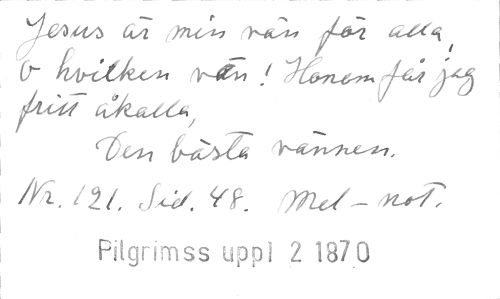 Jesus är min vän för alla,
o hvilken vän! Honom får jag
fritt åkalla,
Den bästa vännen.
Nr. 121. Sid. 48. Mel-not.
Pilgrimss uppl 2 1870